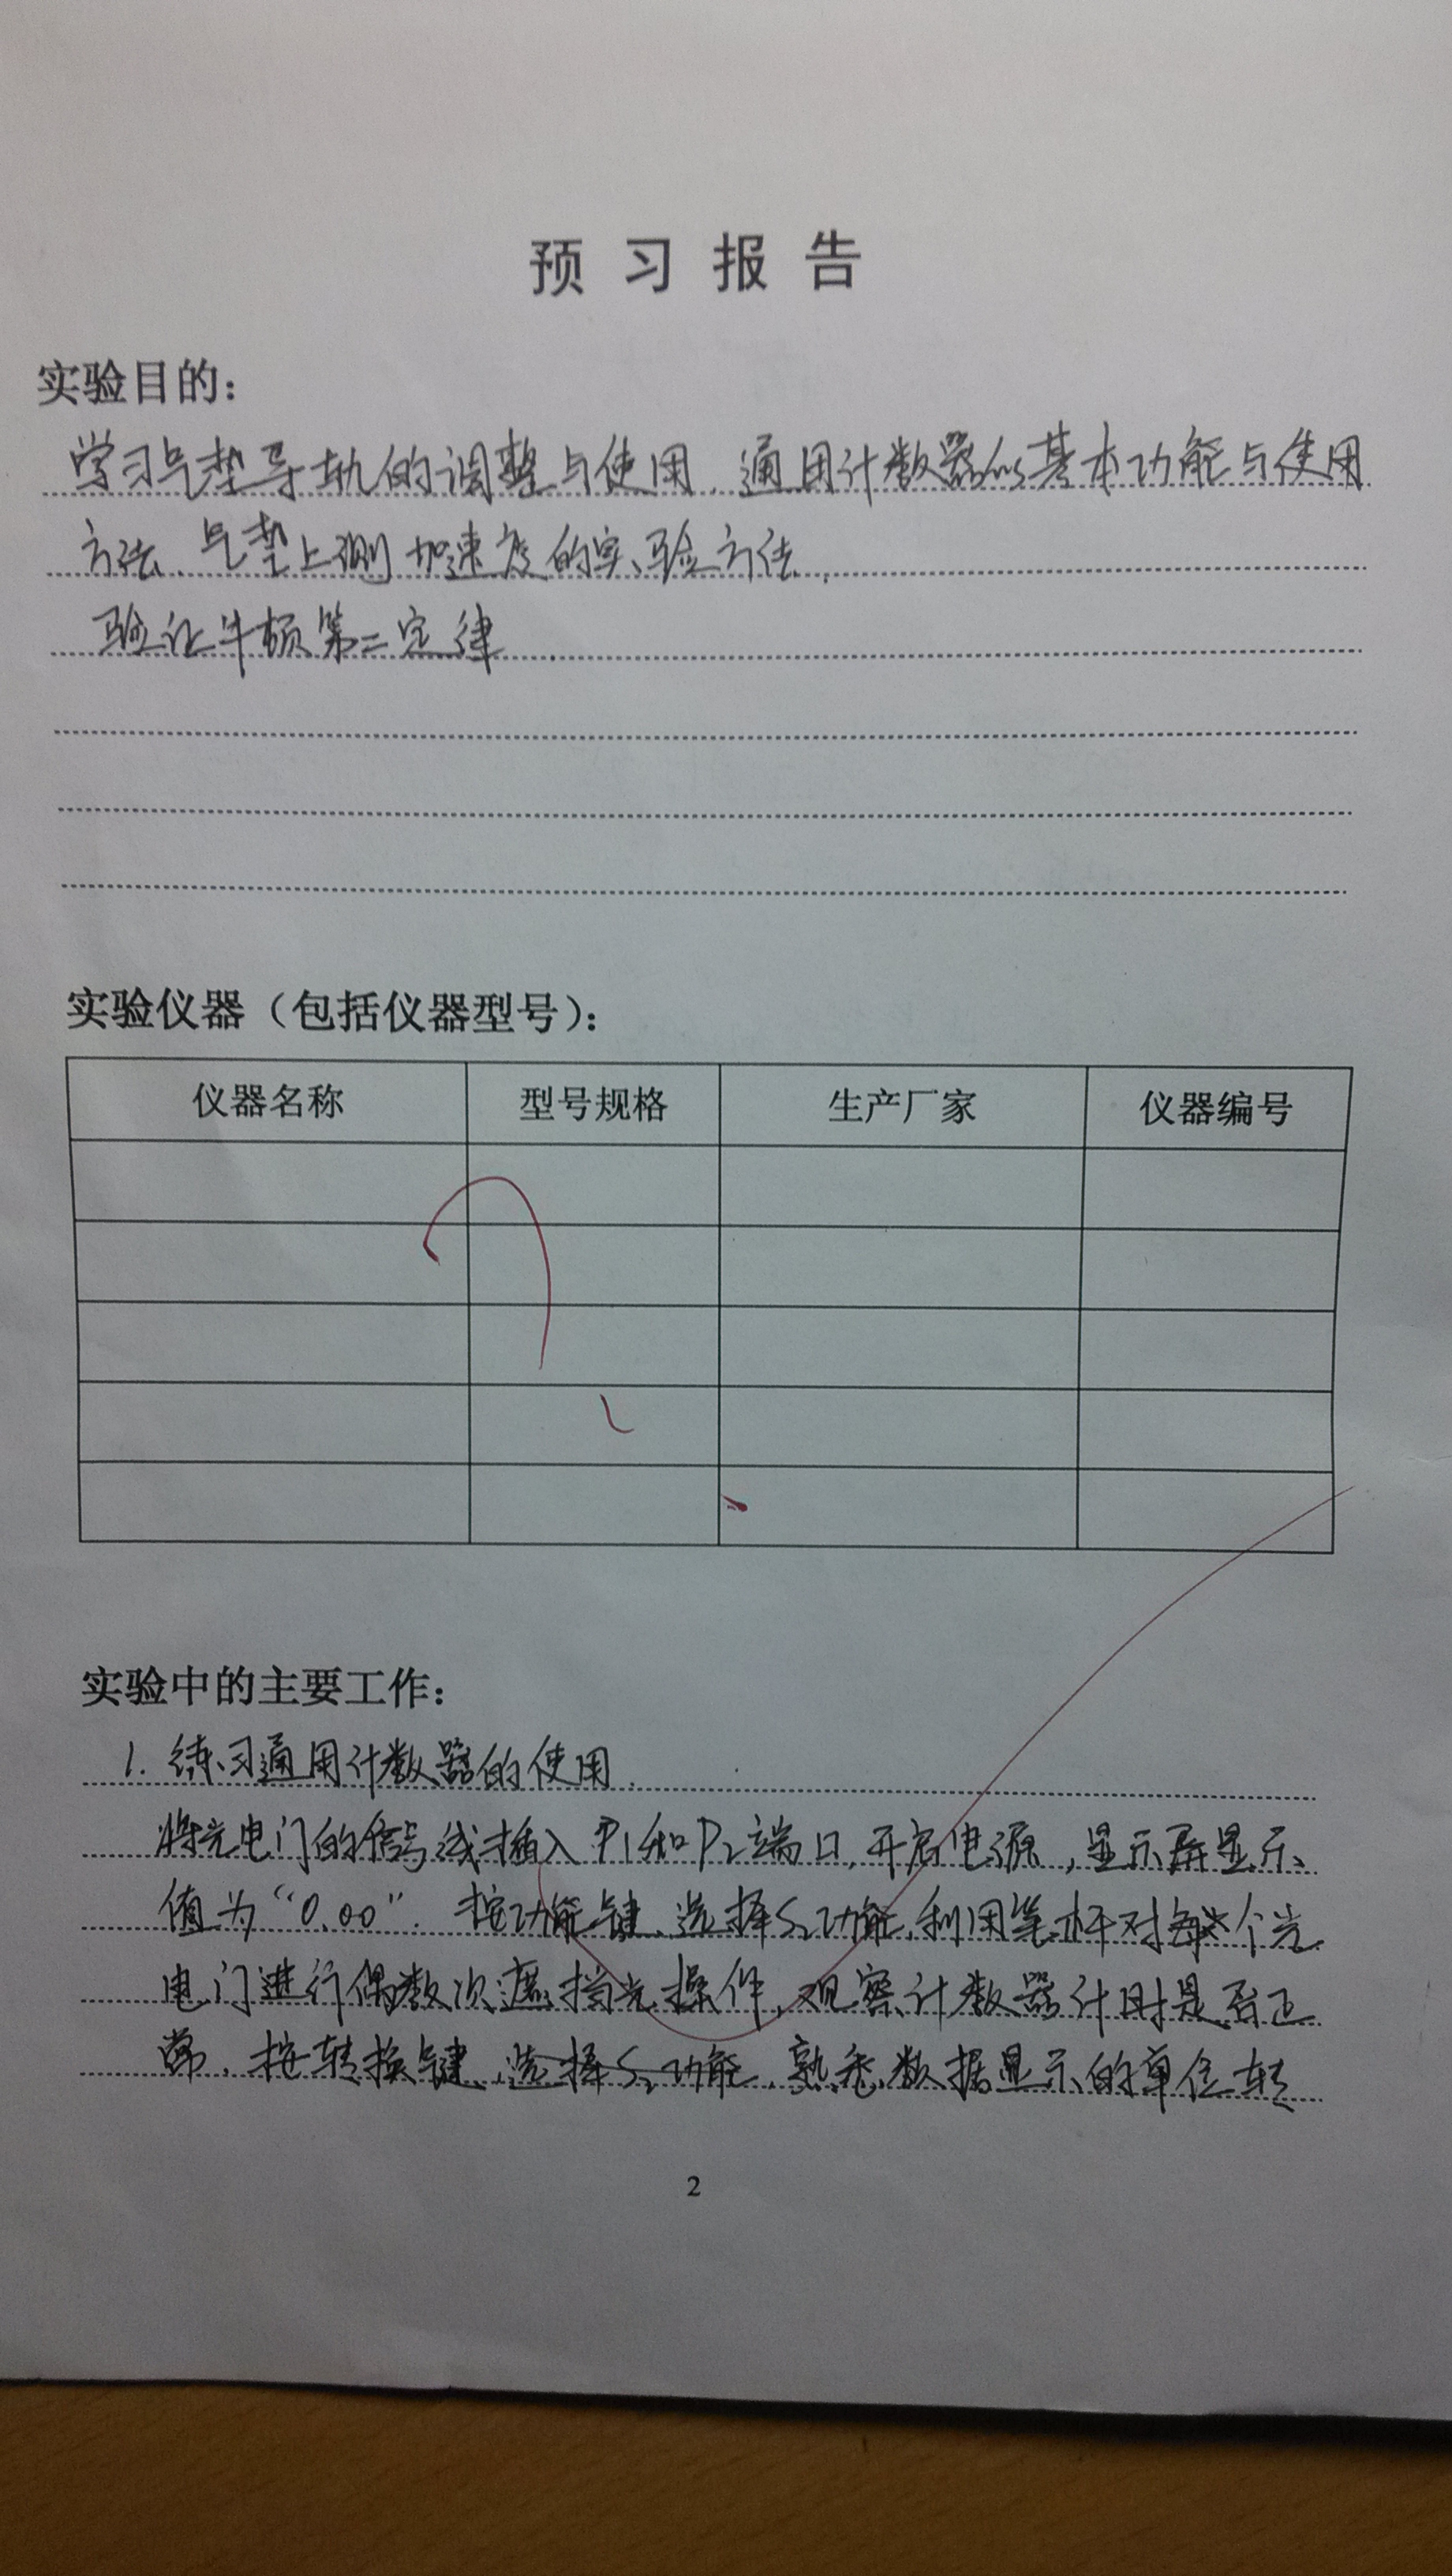 预习报告
实验目的：
学习气垫导轨的调整与使用、通用计数器的基本功能与使用
方法、气垫上测加速度的实验方法，
验证牛顿第二定律.
实验仪器（包括仪器型号）：
仪器名称 型号规格 生产厂家 仪器编号
实验中的主要工作：
1. 练习通用计数器的使用.
将光电门的信号线插入P1和P2端口,开启电源，显示屏显示
值为“0.00”. 按功能键、选择S2功能,利用笔杆对每个光
电门进行偶数次遮挡光操作,观察计数器计时是否正
常、按转换键、选择S2功能,熟悉数据显示的单位转
2